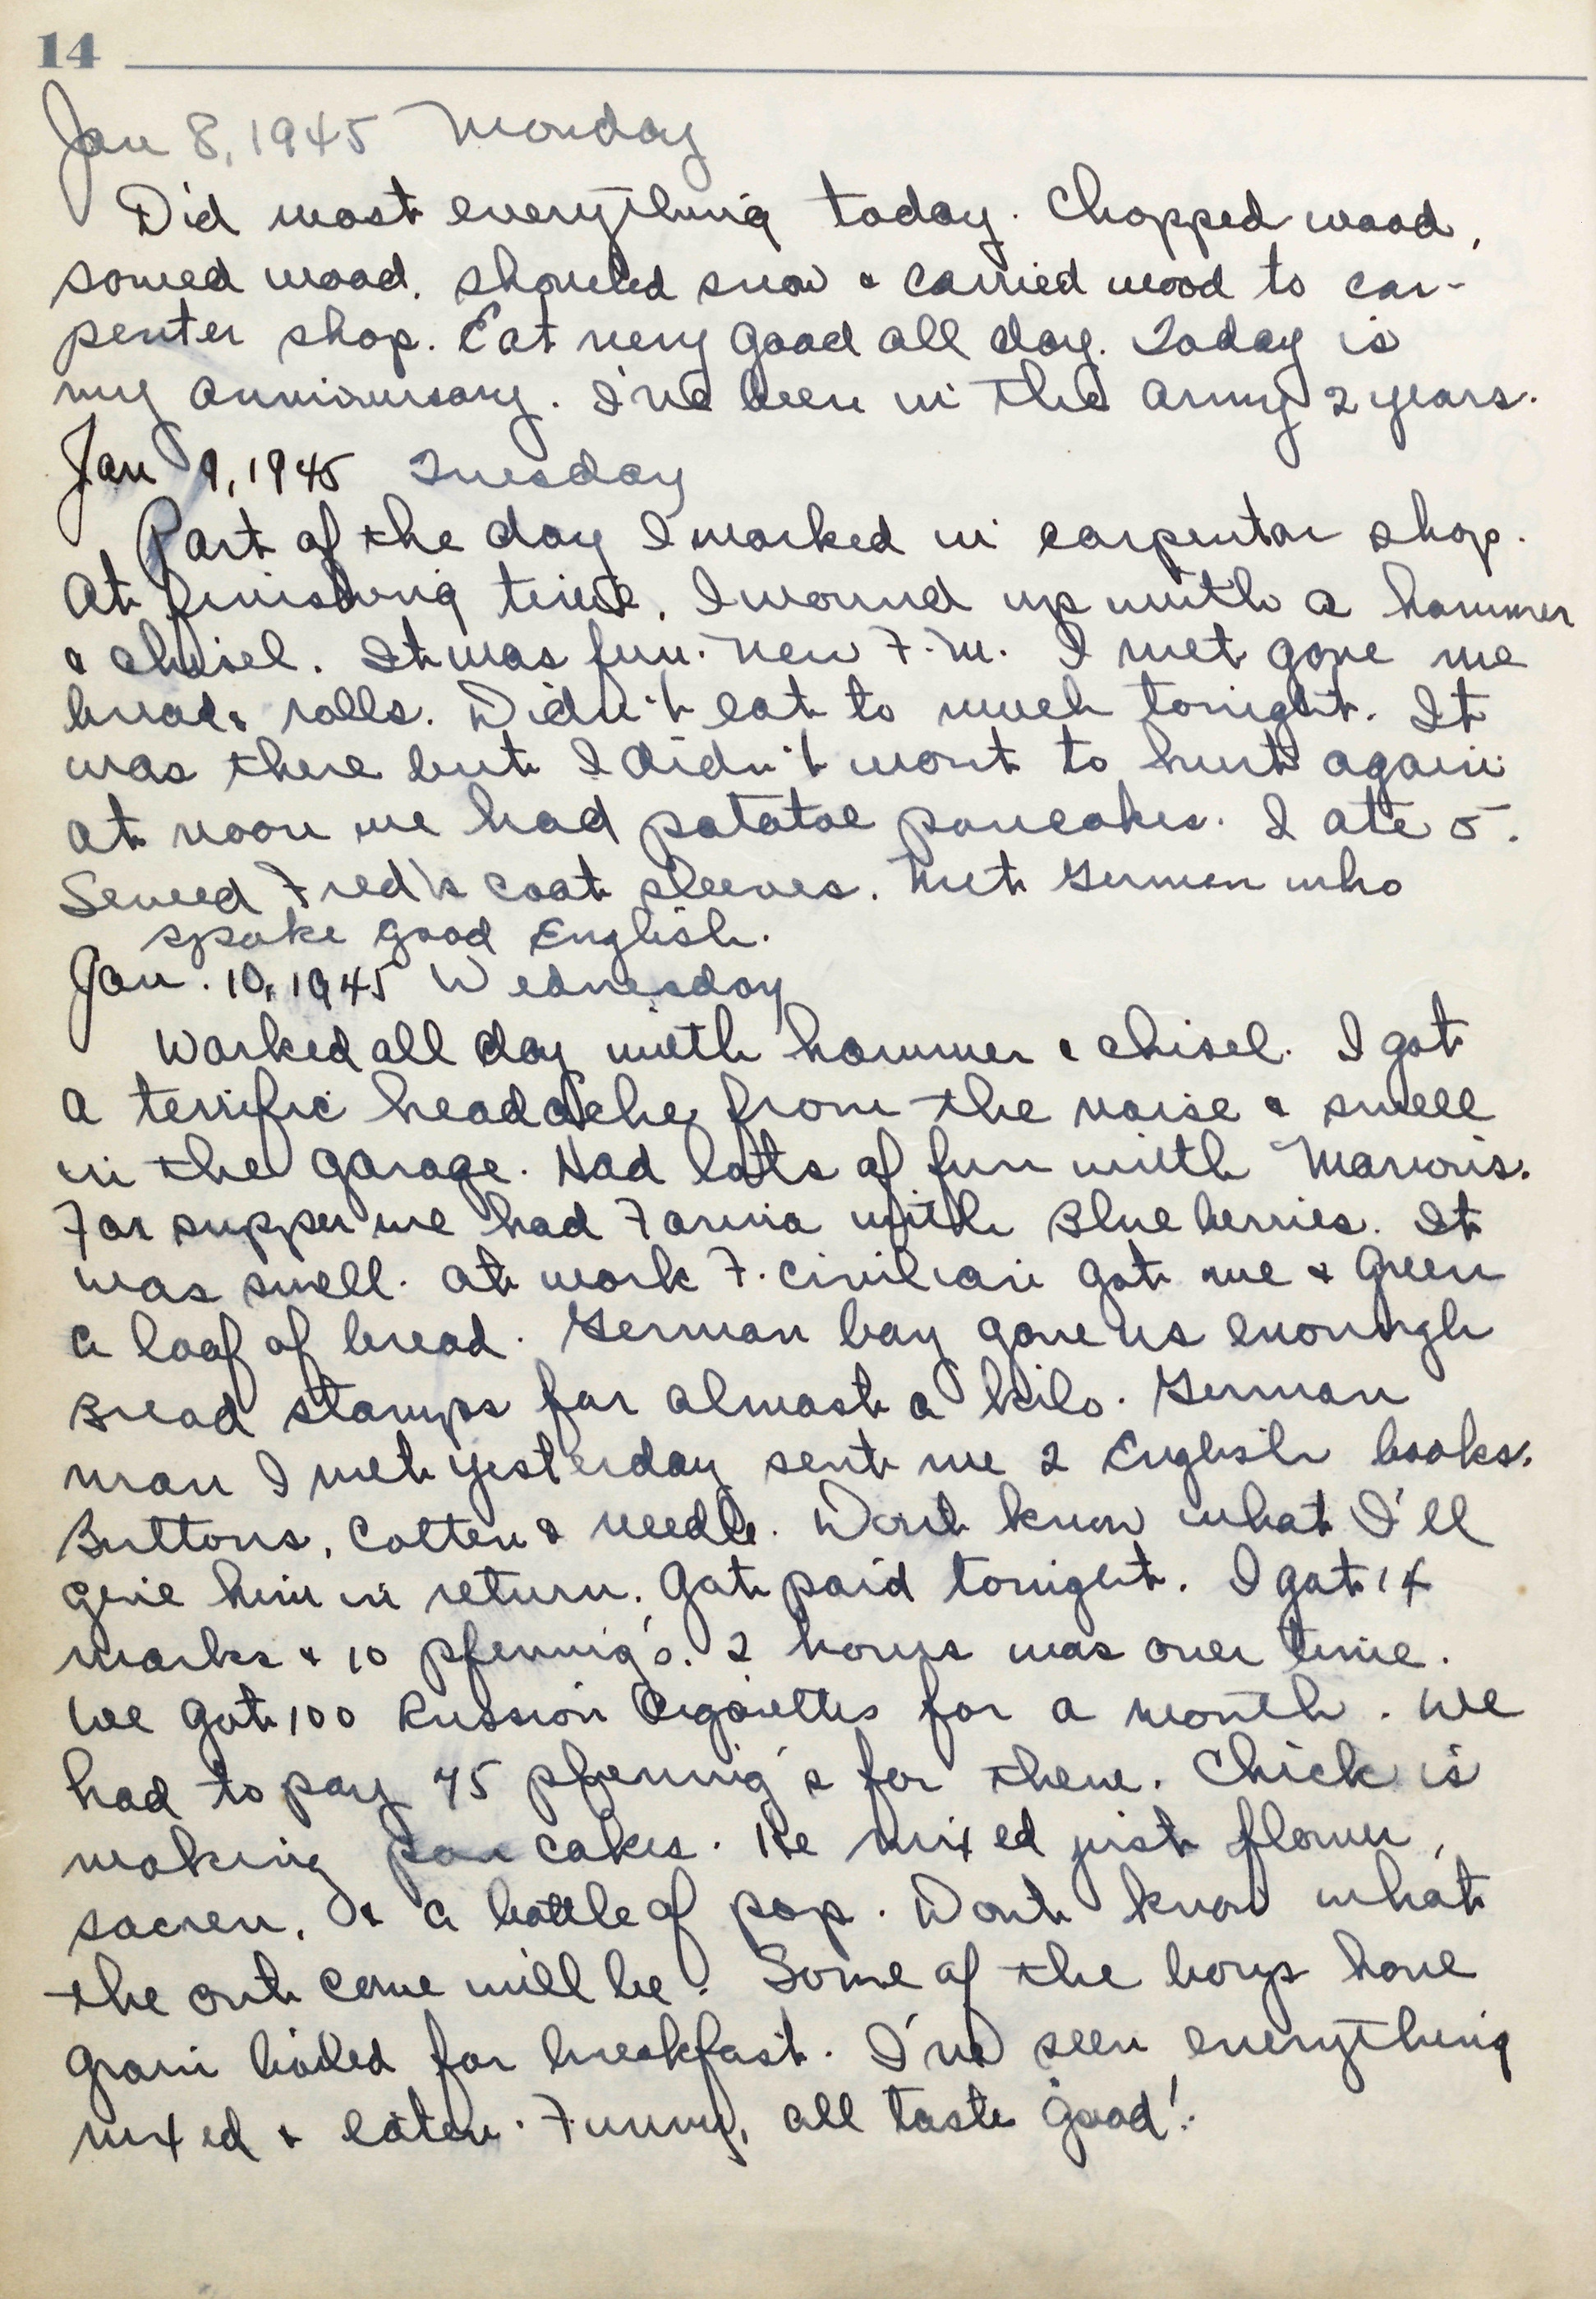 14
Jan 8, 1945 Monday
Did most everything today. Chopped wood,
sowed wood, shoveled snow & carried wood to car-
penter shop. Eat very good all day. Today is
my anniversary. I've been in the army 2 years.
Jan 9, 1945 Tuesday
Part of the day I worked in carpentar shop.
At finishing time, I wound up with a hammer
& chisel. It was fun. New F.M. I met gave me
bread & rolls. Didn't eat to much tonight. It
was there but I didn't want to hurt again.
At noon we had potatoe pancakes. I ate 5.
Sewed Fred's coat sleeves. Met German who
spoke good English.
Jan. 10, 1945 Wednesday
Worked all day with hammer & chisel. I got
a terrific headache from the noise & smell
in the garage. Had lots of fun with
For supper we had Farina with Blue berries. It
was swell. At work F. civilian got me & Green
a loaf of bread. German boy gave us enough
Bread stamps for almost a kilo. German
man I met yesterday sent me 2 English books.
Buttons, Cotten & needle. Don't know what I'll
give him in return. Got paid tonight. I got 14
marks & 10 pfennig's. 2 hours was over time.
We got 100 Russian Cigarettes for a month. We
had to pay 45 pfennig's for them. Chick is
making pan cakes. He mixed just flower,
sacren, & a bottle of pop. Don't know what
the out come will be. Some of the boys have
grain boiled for breakfast. I've seen everything
mixed & eaten. Funny, all taste good!